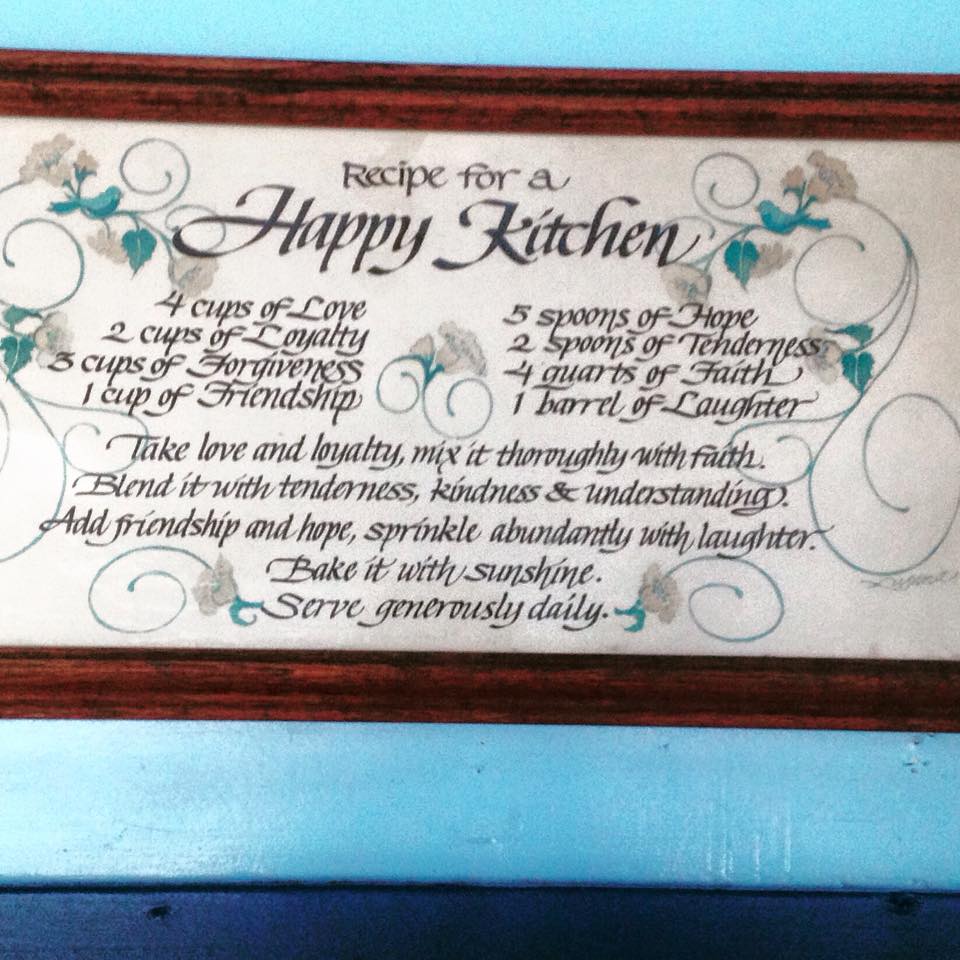 Recipe for a
Happy Kitchen
4 cups of Love
2 cups of Loyalty
3 cups of Forgiveness
1 cup of Friendship
5 spoons of Hope
2 spoons of Tenderness
4 quarts of Faith
1 barrel of Laughter
Take love and loyalty, mix it thoroughly with faith.
Blend it with tenderness, kindness & understanding.
Add friendship and hope, sprinkle abundantly with laughter.
Bake it with sunshine.
Serve generously daily.